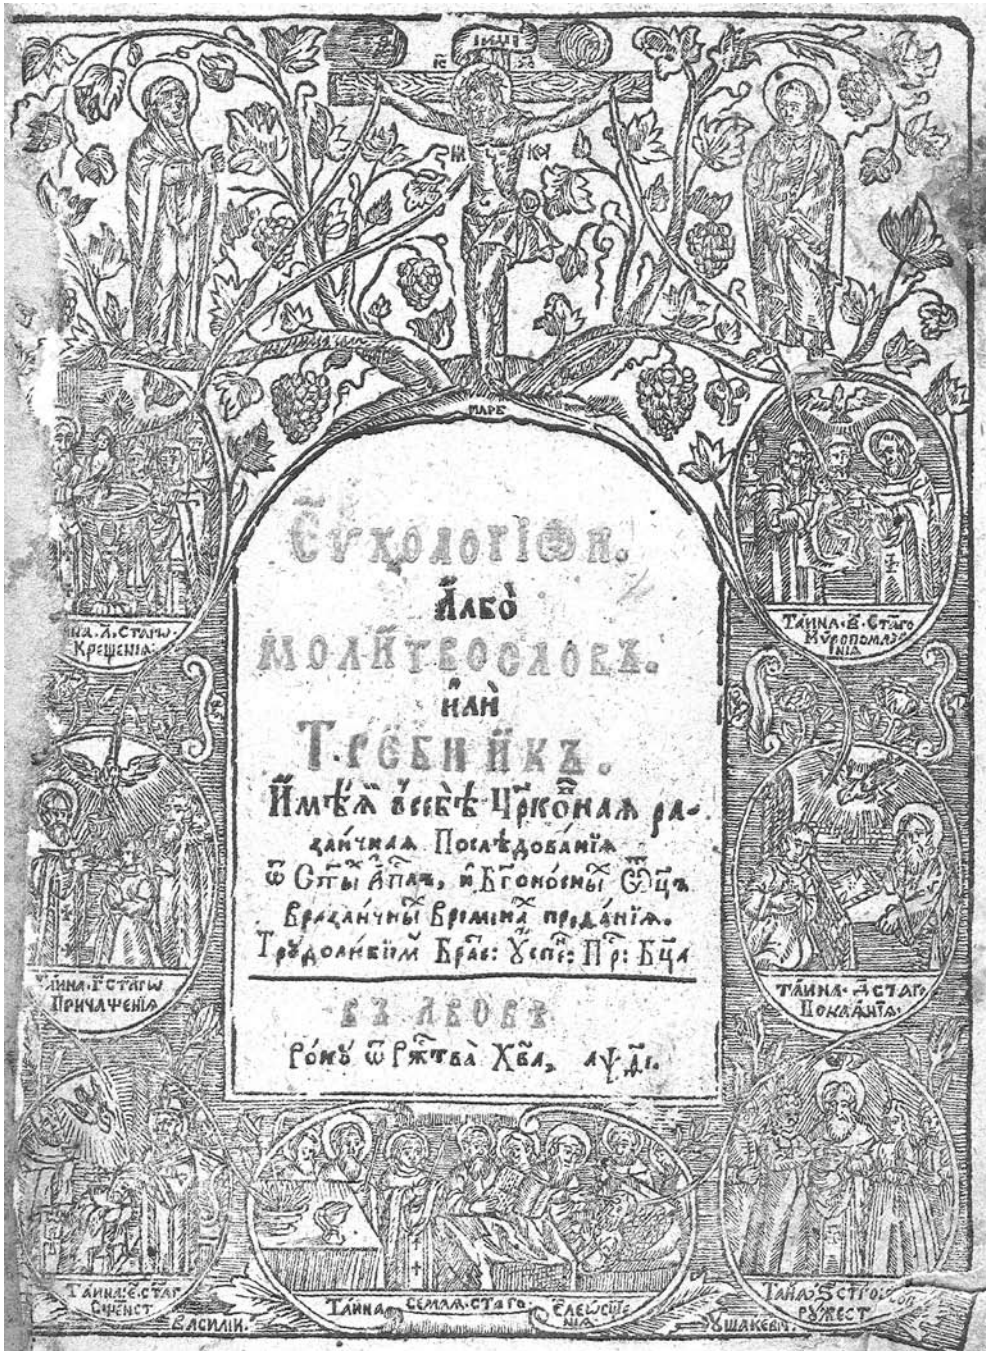 ІНЦІ
ІС ХС
НИ КА
МАРЕ
Єѵхологіѡн.
Албо̀
Моли́твословъ.
илѝ
Тре́бникъ.
Имѣ́ѧй въсебѣ̀ Цр҃ко́внаѧ ра-
зли́чнаѧ Послѣ́дованїѧ
ѿ Ст҃ы́х Ап҃лъ, и҆ Бг҃оно́сны Ѿц҃ъ
Вразли́чны времена̀ преда́нїѧ.
Трудолю́бїем Бра́с: Оу҆спе́: Пр: Бц҃а
ВЪ ЛВОВѢ
Ро́ку ѿ Рж҃тва̀ Хв҃а, аѱ҃
ИНА · А҃ · СТАГѠ ·
КРЕЩЕНІѦ
ТАЙНА · В҃ · СТ҃АГО
МѴРОПОМАЗА
НІѦ
ТАЙНА · Г҃ СТАГѠ
ПРИЧАЩЕНІѦ
ТАЙНА · Д҃ СТАГО
ПОКАѦНІѦ ·
ТАЙНА · Є҃ · СТ҃АГ
СЩ҃ЕНСТ
ТАЙНА СЕМАѦ · СТАГО · ЕЛЕѠСЩЕ
НІѦ ·
ТАЙНА Ѕ҃ СТГО
РУЖЕСТ
ВАСИЛІЙ ·
УШАКЕВИЧ ·